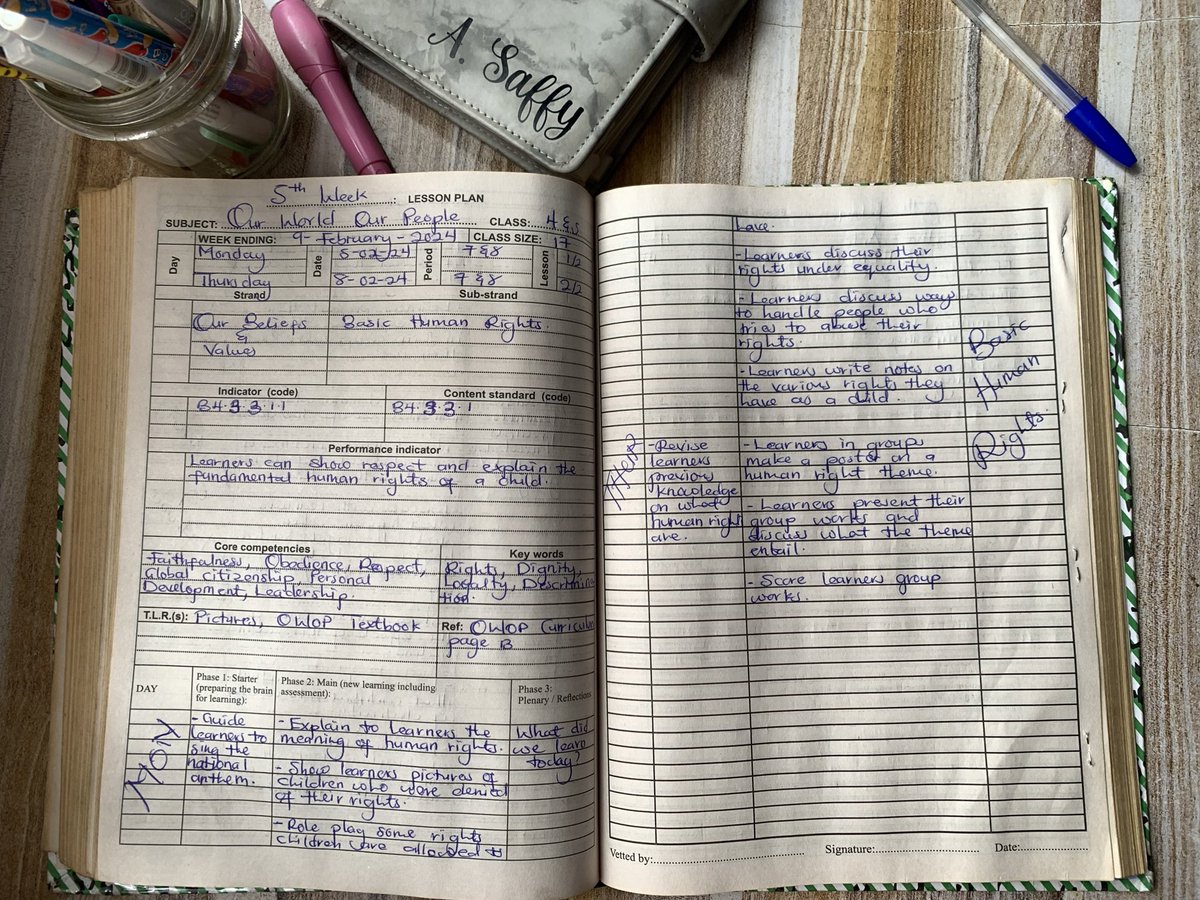 A. Saffy
5th Week LESSON PLAN
SUBJECT: Our World Our People CLASS: 4 & 5
WEEK ENDING: 9-February-2024 CLASS SIZE: 17
Day Monday Date 5-02-24 Period 7 & 8 Lesson 1/2
Thursday 8-02-24 7 & 8 2/2
Strand Sub-strand
Our Beliefs Basic Human Rights.
&
Values
Indicator (code) Content standard (code)
B4.3.3.1.1 B4.3.3.1
Performance indicator
Learners can show respect and explain the
fundamental human rights of a child.
Core competencies Key words
Faithfulness, Obedience, Respect, Rights, Dignity,
Global citizenship, Personal Loyalty, Descrimina
Development, Leadership. tion.
T.L.R.(s): Pictures, OWOP Textbook Ref: OWOP Curricul
page
DAY Phase 1: Starter Phase 2: Main (new learning including Phase 3:
(preparing the brain assessment): Plenary / Reflections
for learning):
MON - Guide - Explain to learners the What did
learners to meaning of human rights. we learn
sing the today?
national - Show learners pictures of
anthem. children who were denied
of their rights.
- Role play some rights
children are allowed to
have.
- Learners discuss their
rights under equality.
- Learners discuss way
to handle people who
tries to abuse their
rights.
- Learners write notes on
the various rights they
have as a child.
Basic
Human
Rights.
- Revise - Learners in groups
learners make a poster on a
previous human right theme.
knowledge
on what - Learners present their
human right group works and
are. discuss what the theme
entail.
- Score learners group
works.
Vetted by: Signature: Date: